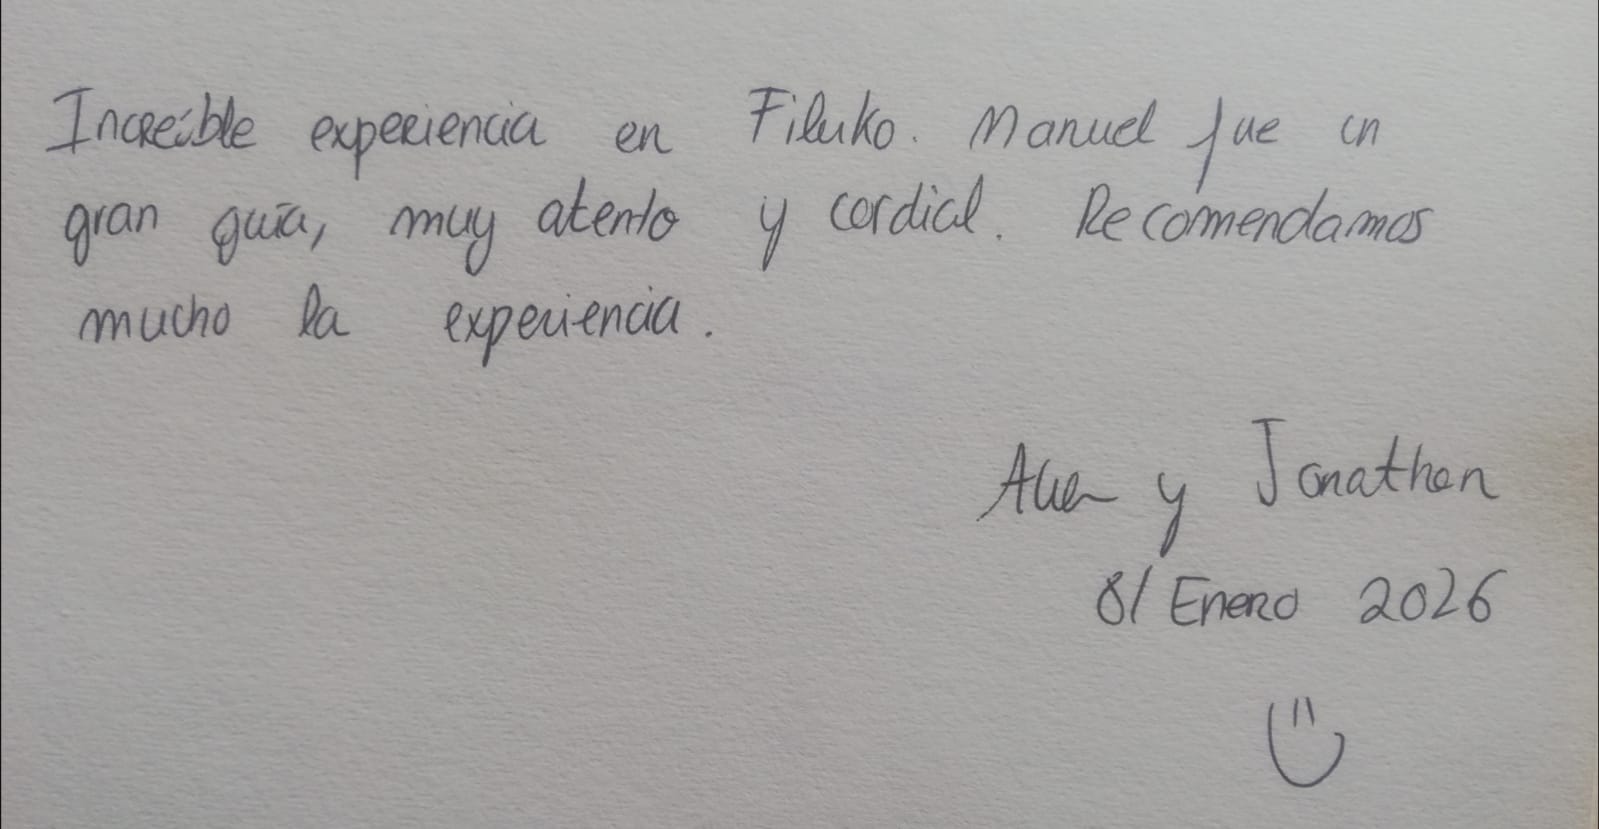 Increíble experiencia en Filuko. Manuel fue un
gran guía, muy atento y cordial. Recomendamos
mucho la experiencia.
y Jonathan
8/ Enero 2026